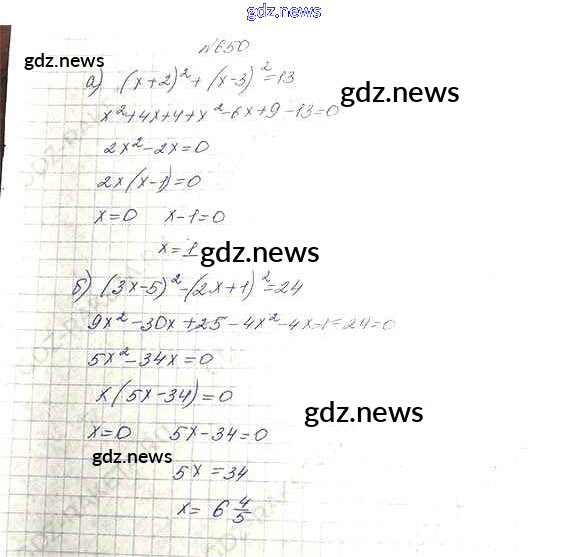 gdz.news
№650
gdz.news
а) (x+2)²+(x-3)²=13
gdz.news
x²+4x+4+x²-6x+9-13=0
2x²-2x=0
2x(x-1)=0
x=0 x-1=0
x=1
gdz.news
б) (3x-5)²-(2x+1)²=24
9x²-30x+25-4x²-4x-1-24=0
5x²-34x=0
x(5x-34)=0
gdz.news
x=0 5x-34=0
gdz.news
5x=34
x=6 4/5